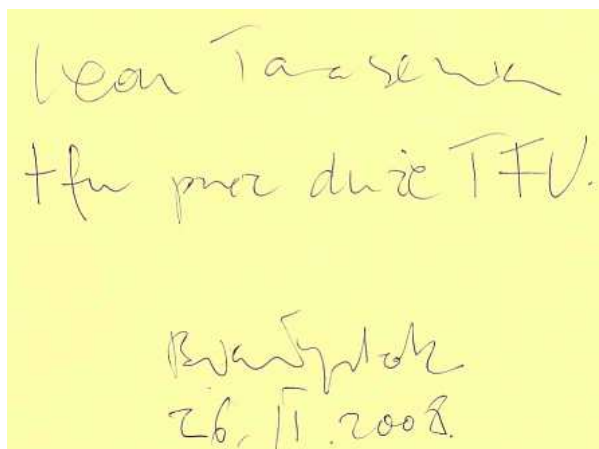 Leon Tarasewicz
tfu przez duże TFU.
Białystok
26. II. 2008.